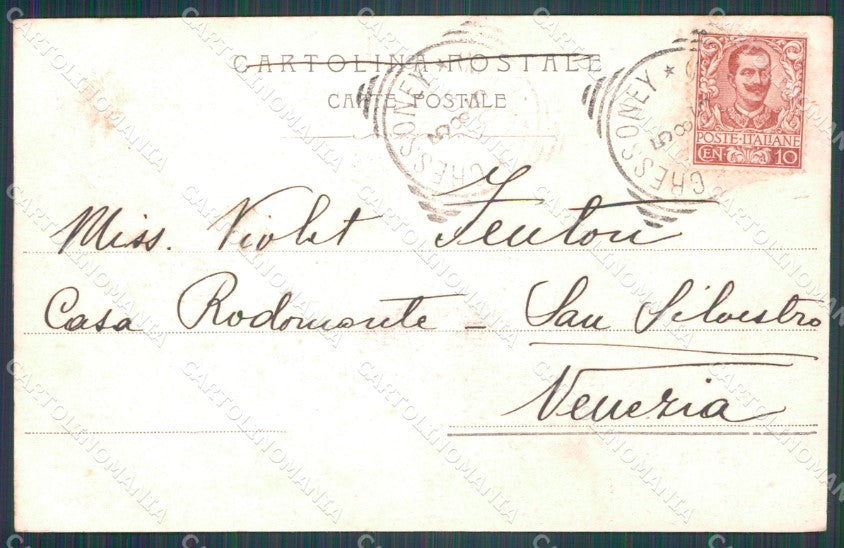 CARTOLINA POSTALE
CARTE POSTALE
GRESSONEY
GRESSONEY
POSTE·ITALIANE
CEN 10
Miss. Violet Fenton
Casa Rodomonte - San Silvestro
Venezia
CARTOLINOMANIA